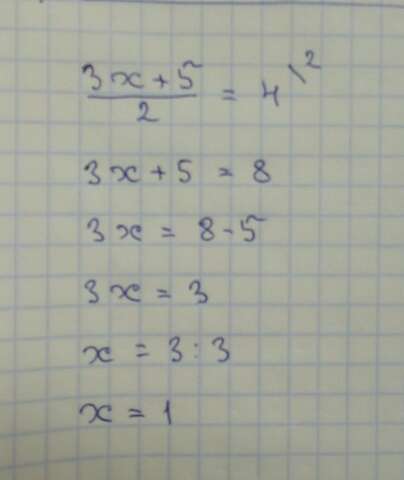 (3x+5)/2 = 4 \2
3x + 5 = 8
3x = 8 - 5
3x = 3
x = 3 : 3
x = 1